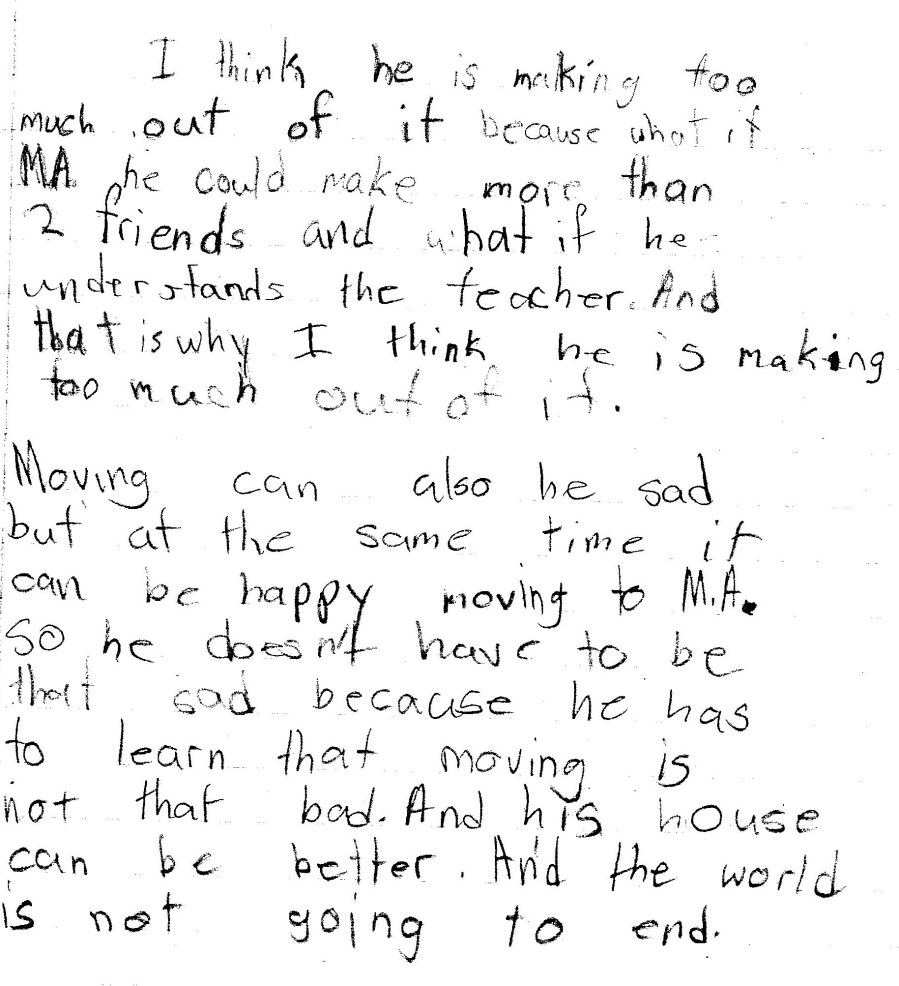 I think he is making too
much out of it because what if
MA he could make more than
2 friends and what if he
understands the teacher. And
that is why I think he is making
too much out of it.
Moving can also be sad
but at the same time it
can be happy moving to M.A.
So he doesn't have to be
that sad because he has
to learn that moving is
not that bad. And his house
can be better. And the world
is not going to end.